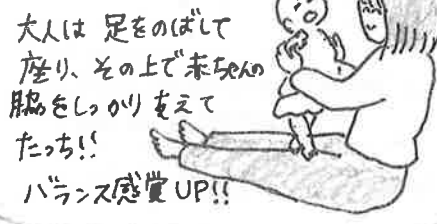 大人は 足をのばして
座り、その上で赤ちゃんの
脇をしっかり支えて
たっち!!
バランス感覚UP!!